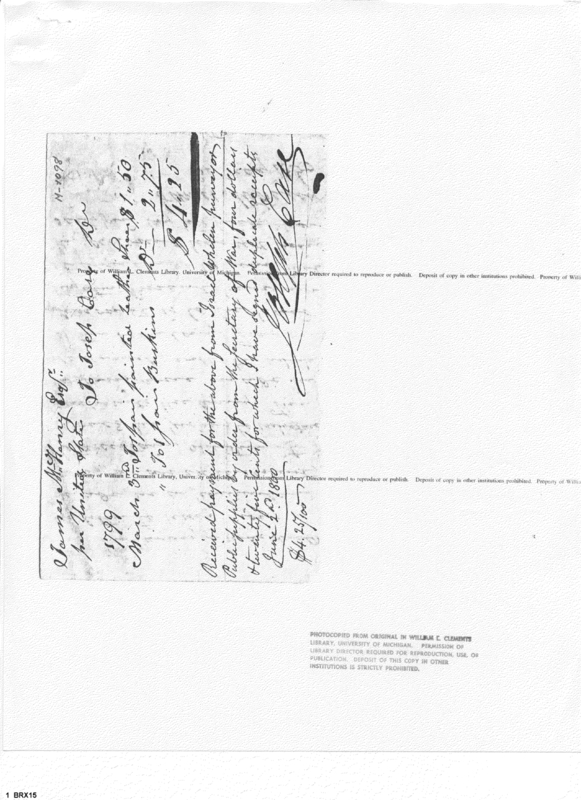 M-1098
James McHenry Esqr.
per United States To Joseph Care Dr
1799
March 3rd To 1 pair painted leather Shoes $ 1,, 50
" To 1 pair Buskins Do — 2,, 75
$ 4,, 25
Received payment for the above from Israel Whelen purveyor
Public supplies by order from the Secretary of War, four dollars
& twenty five Cents for which I have signed duplicate receipts
June 2d 1800
$4. 25/100
Joseph Care
Property of William L. Clements Library, University of Michigan. Permission Library Director required to reproduce or publish. Deposit of copy in other institutions prohibited. Property of Will
Property of William L. Clements Library, University of Michigan. Permission Library Director required to reproduce or publish. Deposit of copy in other institutions prohibited. Property of Will
PHOTOCOPIED FROM ORIGINAL IN WILLIAM L. CLEMENTS
LIBRARY, UNIVERSITY OF MICHIGAN. PERMISSION OF
LIBRARY DIRECTOR REQUIRED FOR REPRODUCTION, USE, OR
PUBLICATION. DEPOSIT OF THIS COPY IN OTHER
INSTITUTIONS IS STRICTLY PROHIBITED.
1 BRX15